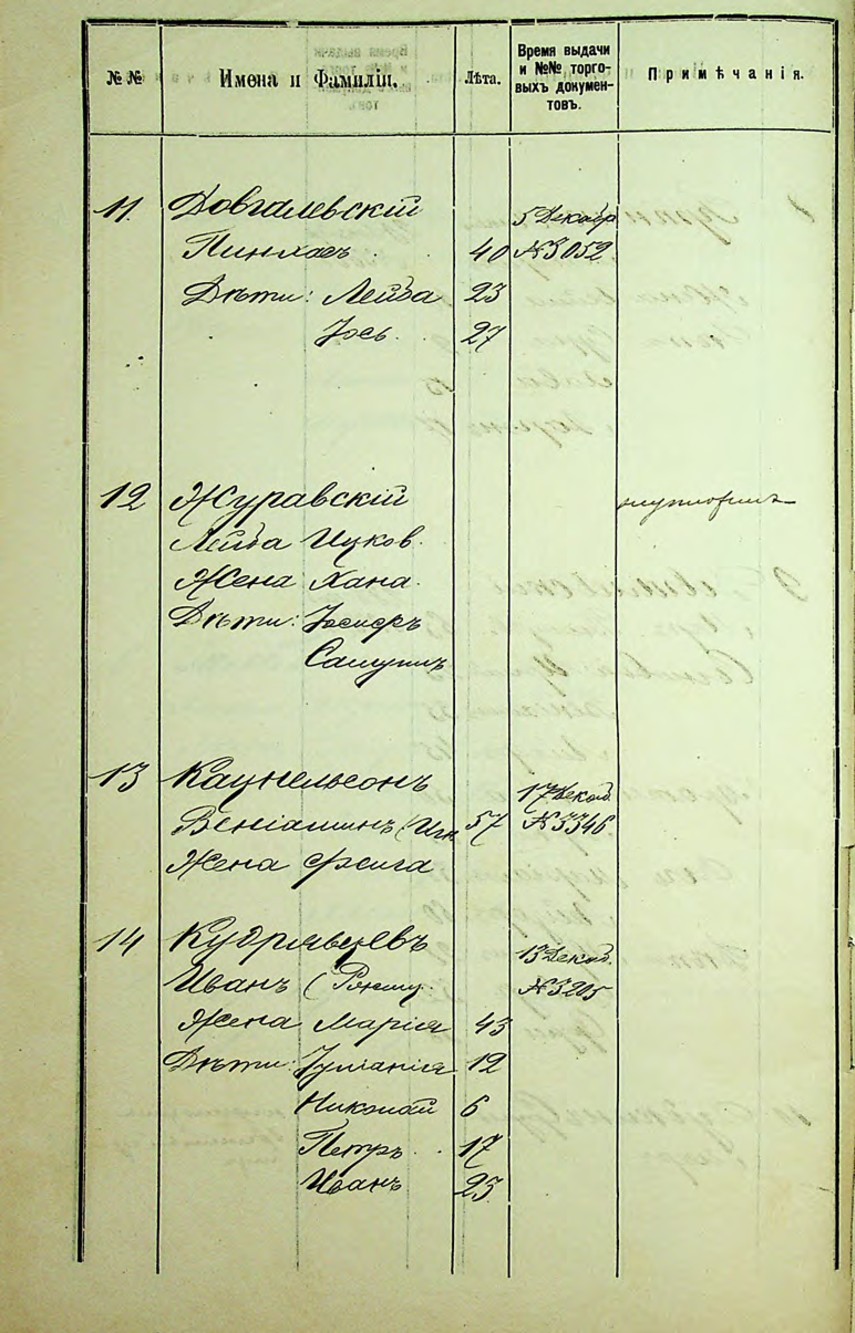 № №
Имена и Фамиліи.
Лѣта.
Время выдачи
и №№ торго-
выхъ докумен-
товъ.
Примѣчанія.
11. Довгалевскій 5 Декабр
Пинхасъ 40 № 3052
Дѣти: Лейба 23
Іось 27
12 Журавскій
Лейба Ицков.
Жена Хана.
Дѣти: Іосифъ
Самуилъ
13 Кацнельсонъ 17 Декаб.
Веніаминъ 57 № 3346
Жена Фейга
14 Кудрявцевъ 13 Декаб.
Иванъ № 3205
Жена Марія 43
Дѣти: Іуліанія 12
Николай 6
Петръ 17
Иванъ 25